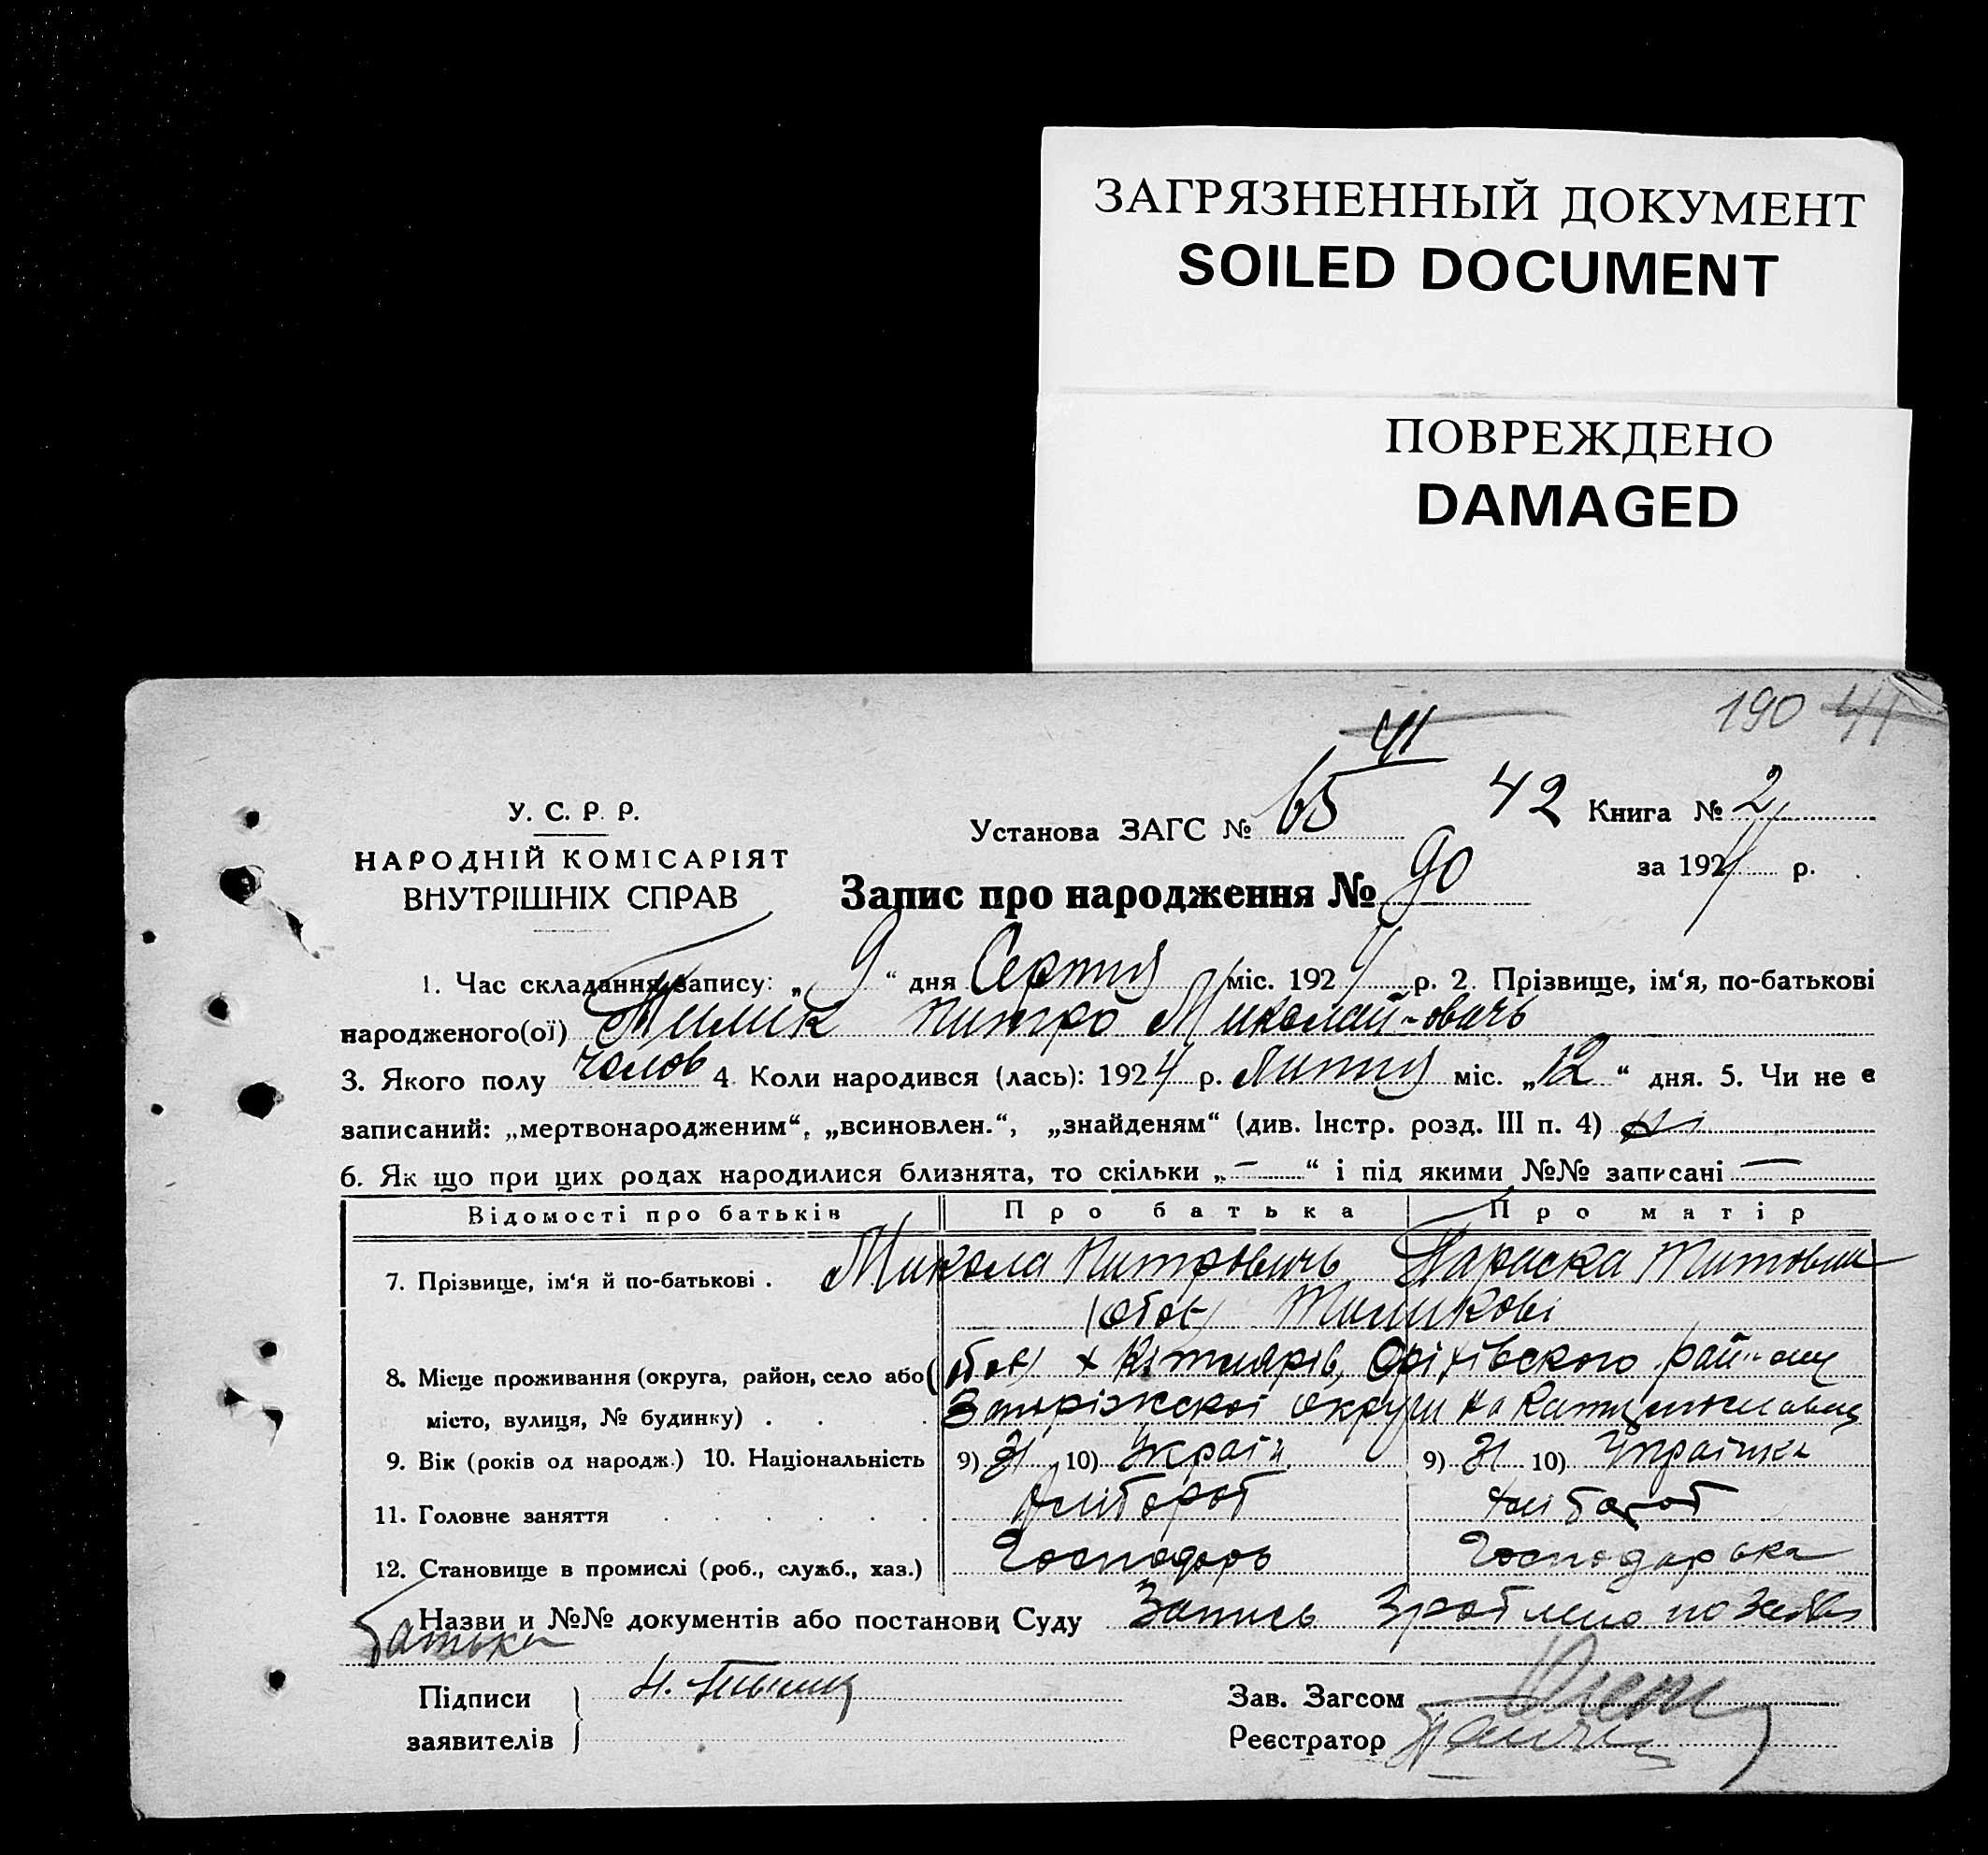 ЗАГРЯЗНЕННЫЙ ДОКУМЕНТ
SOILED DOCUMENT
ПОВРЕЖДЕНО
DAMAGED
190 41
41
У. С. Р. Р.
НАРОДНІЙ КОМІСАРІЯТ
ВНУТРІШНІХ СПРАВ
Установа ЗАГС № 65 42 Книга № 2
за 1924 р.
Запис про народження № 90
1. Час складання запису: „ 9 “ дня Серпня міс. 1924 р. 2. Прізвище, ім‘я, по-батькові
народженого(ої) Тилик Питро Миколай-овичь
3. Якого полу чолов 4 Коли народився (лась): 1924 р. Липня міс. „12“ дня. 5. Чи не є
записаний: „мертвонародженим“, „всиновлен.“, „знайденям“ (див. Інстр. розд. III п. 4) ні
6. Як що при цих родах народилися близнята, то скільки „—“ і під якими №№ записані —
Відомості про батьків Про батька Про матір
7. Прізвище, ім‘я й по-батькові . Микола Питровичь Параска Титовна
Тиликові
8. Місце проживання (округа, район, село або Оріхівського рай-ону
місто, вулиця, № будинку) . . . Запоріжскої округи на Катиринославщ
9. Вік (років од народж.) 10. Національність 9) 21 10) Україн. 9) 21 10) Українка
11. Головне заняття . . . . . . Хлібороб хлібороб
12. Становище в промислі (роб., служб., хаз.) Господарь Господарька
Назви и №№ документів або постанови Суду Запись Зроблено по заяві
батька
Підписи
заявителів
Н. Тылик
Зав. Загсом
Реєстратор